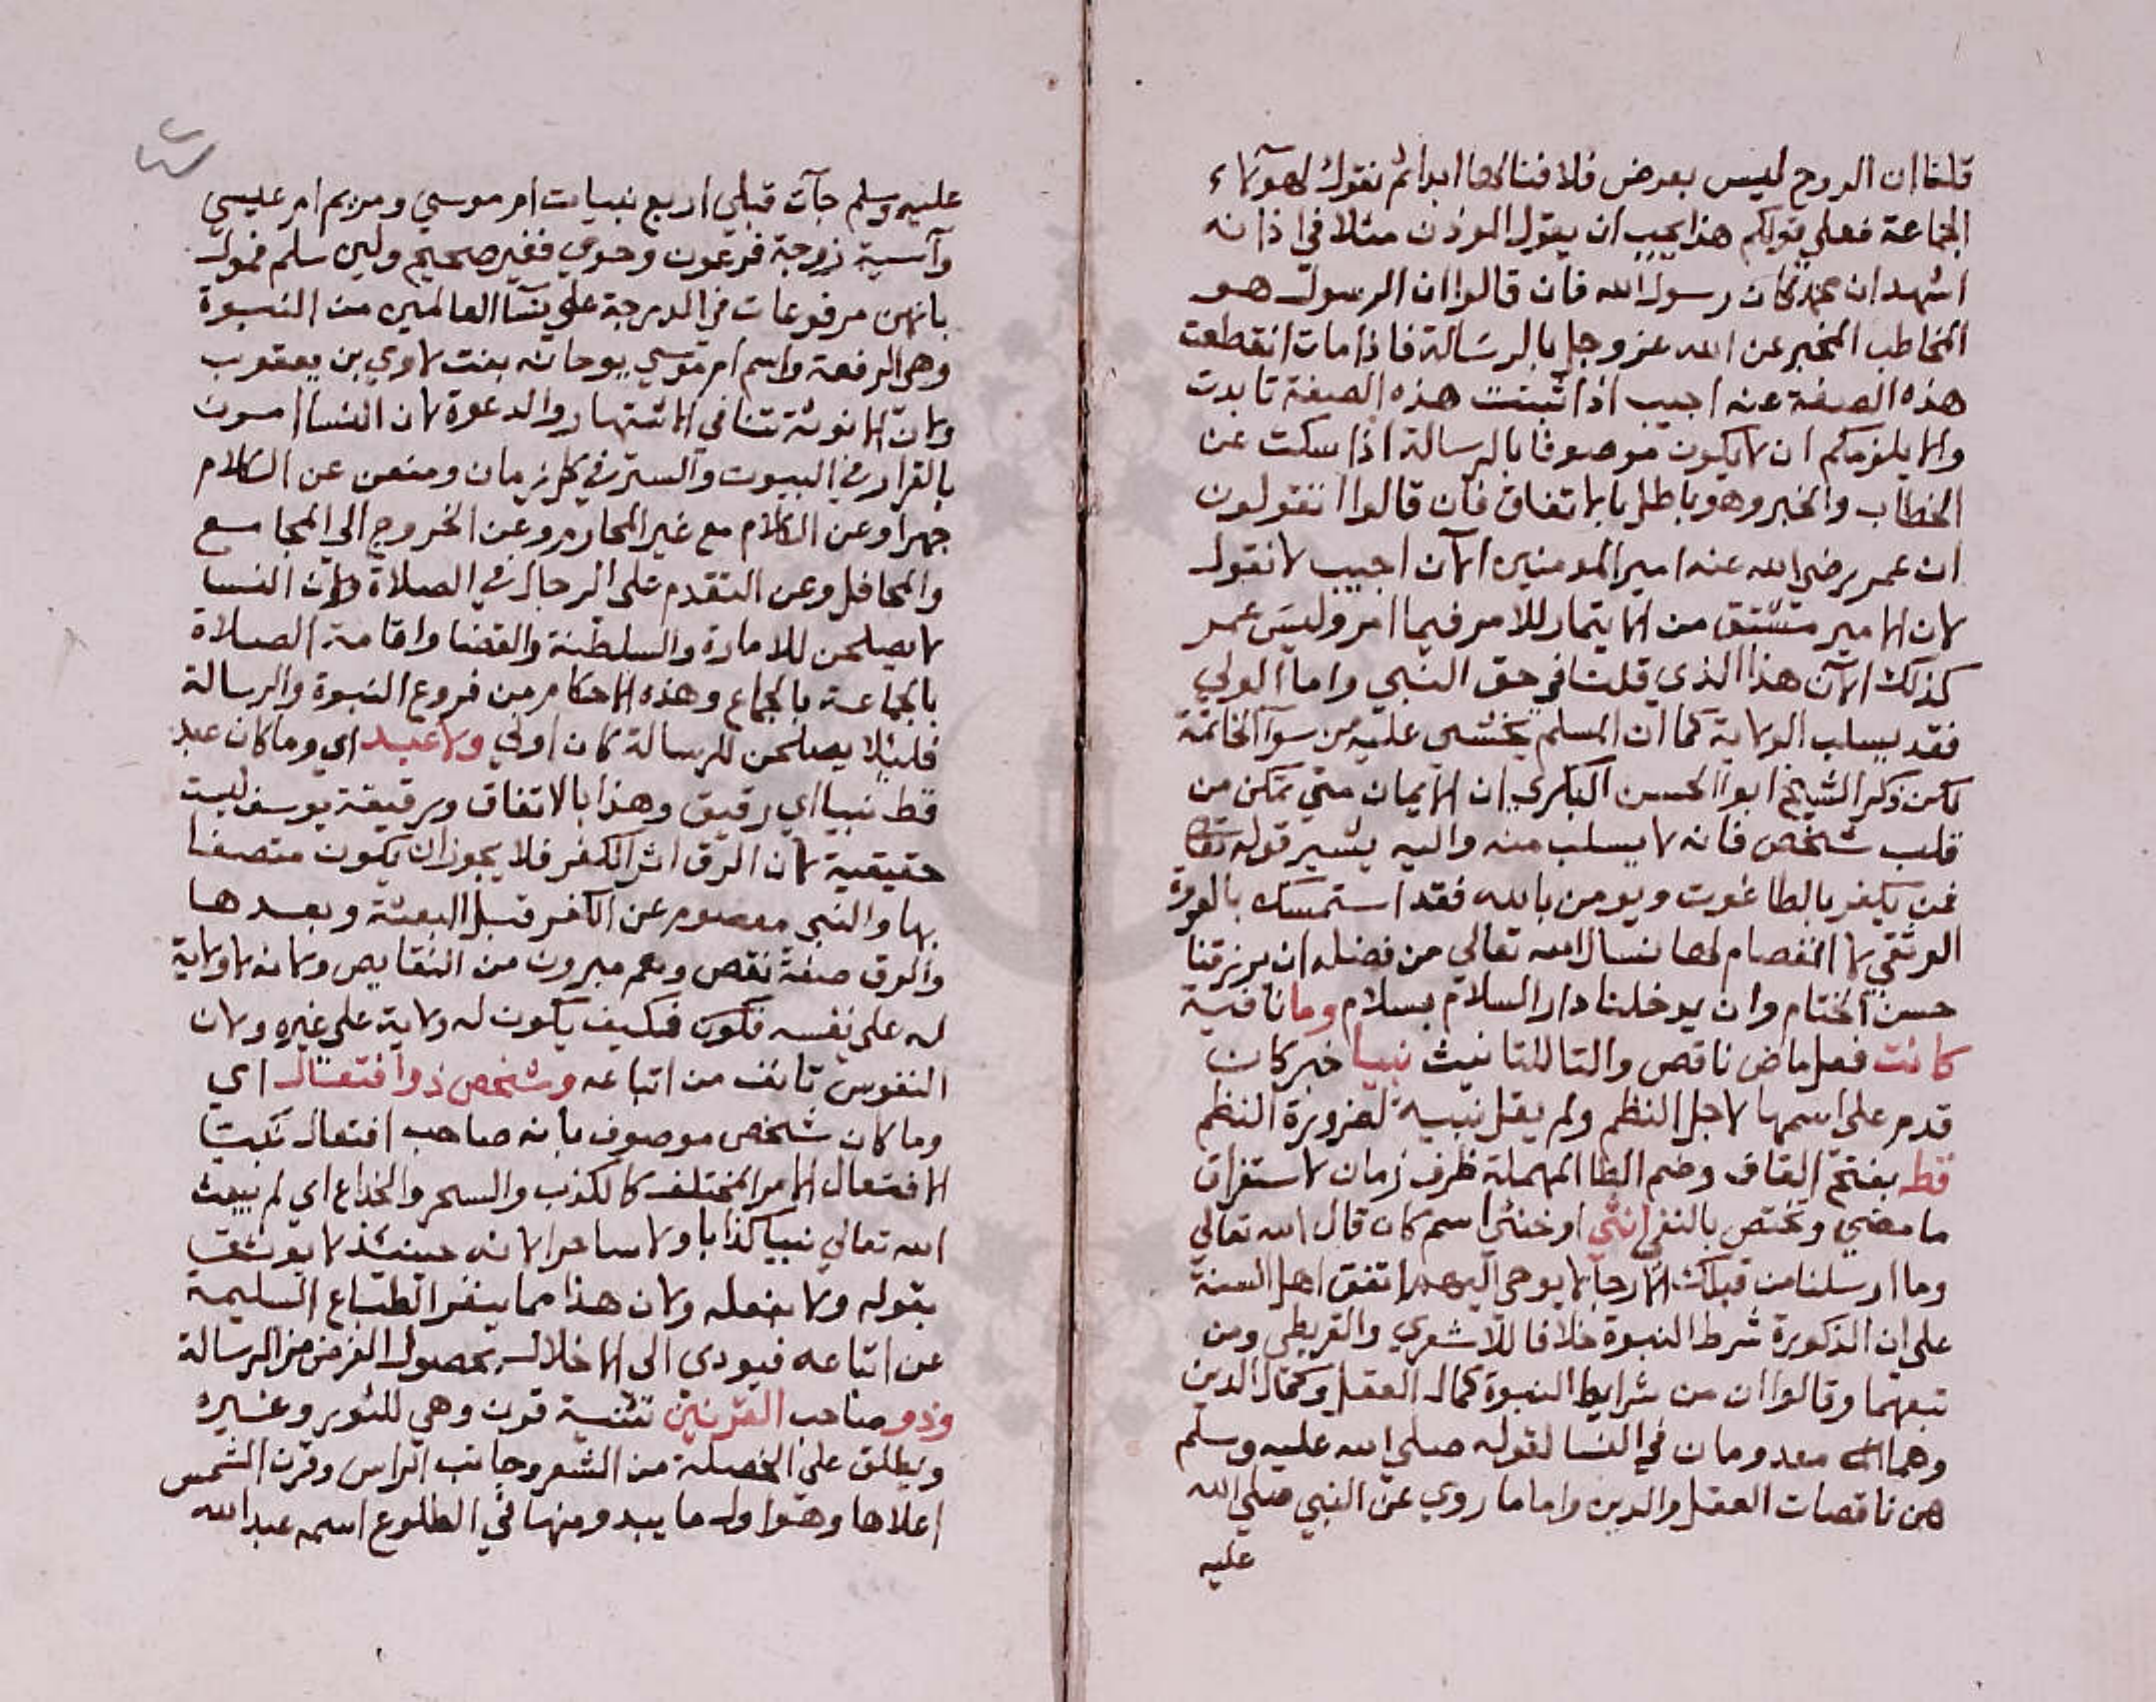 قلنا ان الروح ليس بعرض فلا فنا لها ابدا ثم نقول لهولاء
الجماعة فعلي قولكم هذا يجب ان يقول الموذن مثلا في اذانه
اشهد ان محمدا كان رسول الله فان قالوا ان الرسول هو
المخاطب المخبر عن الله عز وجل بالرسالة فاذا مات انقطعت
هذه الصفة عنه اجيب اذا ثبتت هذه الصفة تابدت
والا يلزمكم ان لا يكون موصوفا بالرسالة اذا سكت عن
الخطاب والخبر وهو باطل بالاتفاق فان قالوا انقولون
ان عمر رضي الله عنه امير المومنين الآن اجيب لا نقول
لان الامير مشتق من الايتمار للامر فيما امر وليس عمر
كذلك الآن هذا الذي قلنا في حق النبي واما الولي
فقد يسلب الولاية كما ان المسلم يخشي عليه من سوء الخاتمة
لكن ذكر الشيخ ابو الحسن البكري ان الايمان متي تمكن من
قلب شخص فانه لا يسلب منه واليه يشير قوله تعالى
فمن يكفر بالطاغوت ويومن بالله فقد استمسك بالعروة
الوثقي لا انفصام لها نسال الله تعالى من فضله ان يرزقنا
حسن الختام وان يدخلنا دار السلام بسلام وما نافية
كانت فعل ماض ناقص والتا للتانيث نبيا خبر كان
قدم على اسمها لاجل النظم ولم يقل نبية لضرورة النظم
قط بفتح القاف وضم الطا المهملة ظرف زمان لاستغراق
ما مضي ويختص بالنفي انثي او خنثي اسم كان قال الله تعالي
وما ارسلنا من قبلك الا رجالا يوحي اليهم اتفق اهل السنة
على ان الذكورة شرط النبوة خلافا للاشعري والقرطبي ومن
تبعهما وقالوا ان من شرايط النبوة كمال العقل وكمال الدين
وهما معدومان في النسا لقوله صلي الله عليه وسلم
هن ناقصات العقل والدين واما ما روي عن النبي صلي الله
عليه
عليه وسلم جآت قبلي اربع نبيات ام موسي ومريم ام عيسي
وآسية زوجة فرعون وحوي فغير صحيح ولين سلم فمول
بانهن مرفوعات في الدرجة علي نسآ العالمين من النبوة
وهي الرفعة واسم ام موسي يوحانه بنت لاوي بن يعقوب
ولان الانوثة تنافي الاشتهار والدعوة لان النسا امرن
بالقرار في البيوت والستر في كل زمان ومنعن عن الكلام
جهرا وعن الكلام مع غير المحارم وعن الخروج الي المجامع
والمحافل وعن التقدم على الرجال في الصلاة ولان النسا
لا يصلحن للامارة والسلطنة والقضا واقامة الصلاة
بالجماعة بالجماع وهذه الاحكام من فروع النبوة والرسالة
فلئلا يصلحن للرسالة كان اولي ولا عبد اي وما كان عبد
قط نبيا اي رقيق وهذا بالاتفاق ورقيقة يوسف ليست
حقيقية لان الرق اثر الكفر فلا يجوز ان يكون متصفا
بها والنبي معصوم عن الكفر قبل البعثة وبعدها
والرق صفة نقص وهم مبرون من النقايص ولانه لا ولاية
له على نفسه فكيف يكون له ولاية على غيره ولان
النفوس تانف من اتباعه وشخص ذو افتعال اي
وما كان شخص موصوف بانه صاحب افتعال نبيا
الافتعال الامر المختلف كالكذب والسحر والخداع اي لم يبعث
الله تعالي نبيا كذابا ولا ساحرا لانه حينئذ لا يوثق
بقوله ولا بفعله ولان هذا مما ينفر الطباع السليمة
عن اتباعه فيودي الى الاخلال بحصول الغرض من الرسالة
وذو صاحب القرنين تثنية قرن وهي للثور وغيره
ويطلق على الخصلة من الشعر وجانب الراس وقرن الشمس
اعلاها وهو اول ما يبدو منها في الطلوع اسمه عبد الله